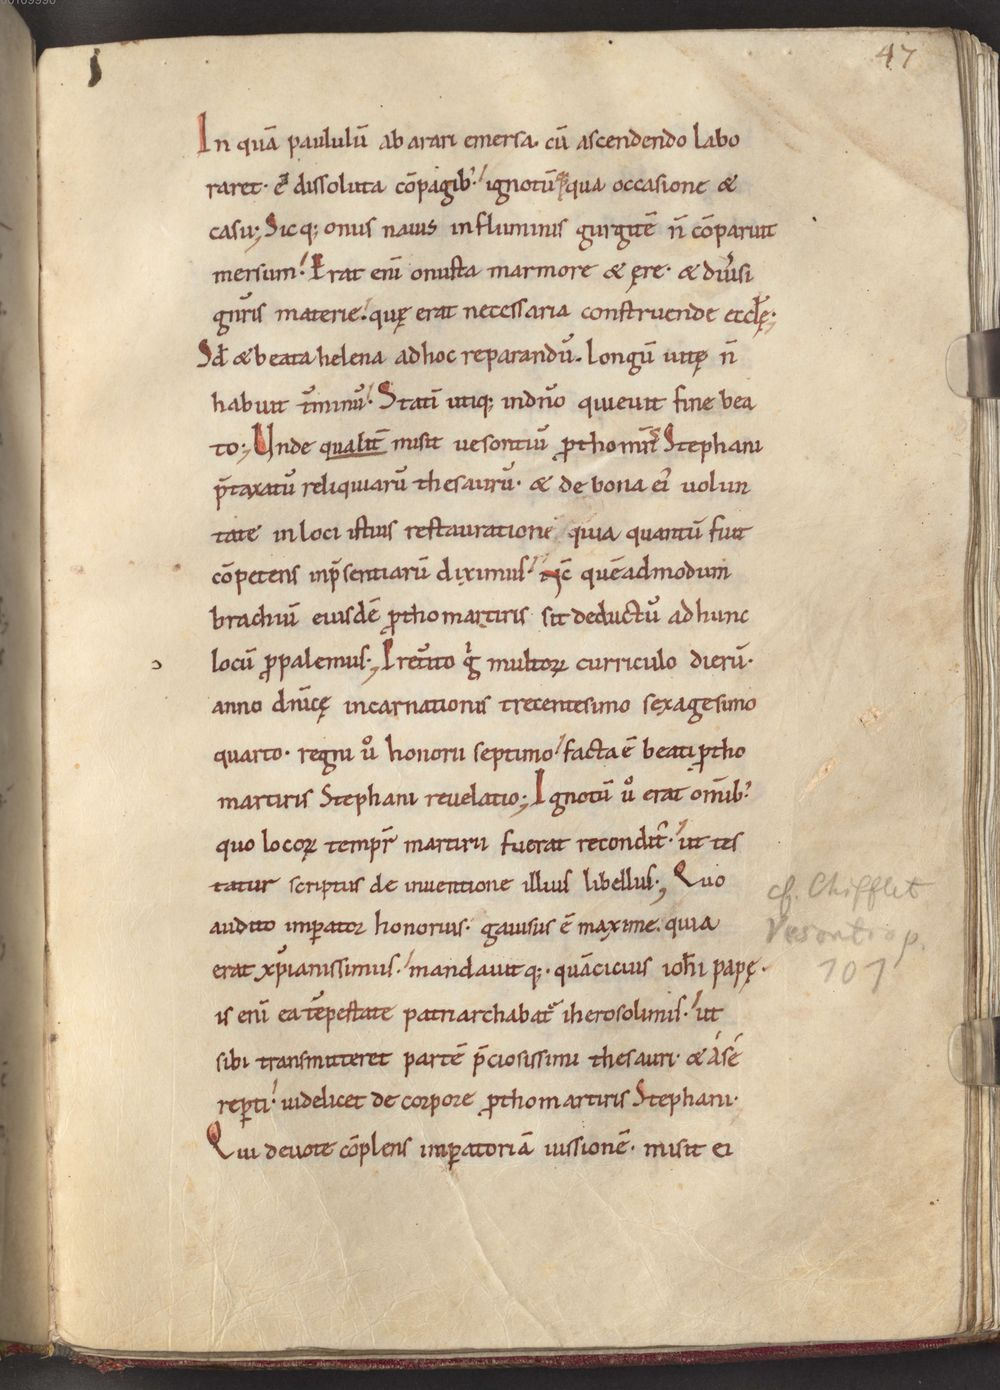 47
In quā paululū ab arari emersa. cū ascendendo labo
raret. ē dissoluta cōpagib; ignotū qua occasione &
casu; Sicq; onus nauis in fluminis gurgitē n̄ cōparuit
mersum. Erat enī onusta marmore & ęre. & diuersi
gn̄ris materie. quę erat necessaria construende eccl̄ę;
Sed & beata helena ad hoc reparandū. longū uitę n̄
habuit t̄minū. Statī utiq; in dn̄o quieuit fine bea
to; Unde qualit̄ misit uesontiū p̱thom̄ris Stephani
p̄taxatū reliquiarū thesaurū. & de bona ei uolun
tate in loci istius restauratione quia quantū fuit
cōpetens inp̄sentiarū diximus. nc̄ quēadmodum
brachiū eiusdē p̱thomartiris sit deductū ad hunc
locū p̱palemus; Pret̄ito g̊ multoꝝ curriculo dierū.
anno dn̄icę incarnationis trecentesimo sexagesimo
quarto. regni ů honorii septimo. facta ē beati p̱tho
martiris Stephani reuelatio; Ignotū ů erat om̄ib;
quo locoꝝ temp̱r martirii fuerat recondit̄. ut tes
tatur scriptus de inuentione illius libellus; Quo
audito imp̱ator honorius. gauisus ē maxime. quia
erat xp̄ianissimus. mandauitq;. quācicius ioh̄i papę.
is enī ea tēpestate patriarchabat̄ iherosolimis. ut
sibi transmitteret partē p̄ciosissimi thesauri. & a se
rep̱ti. uidelicet de corpore p̱thomartiris Stephani.
Qui deuote cōplens imp̱atoriā iussionē. misit ei
cf. Chifflet
Vesontio p.
107